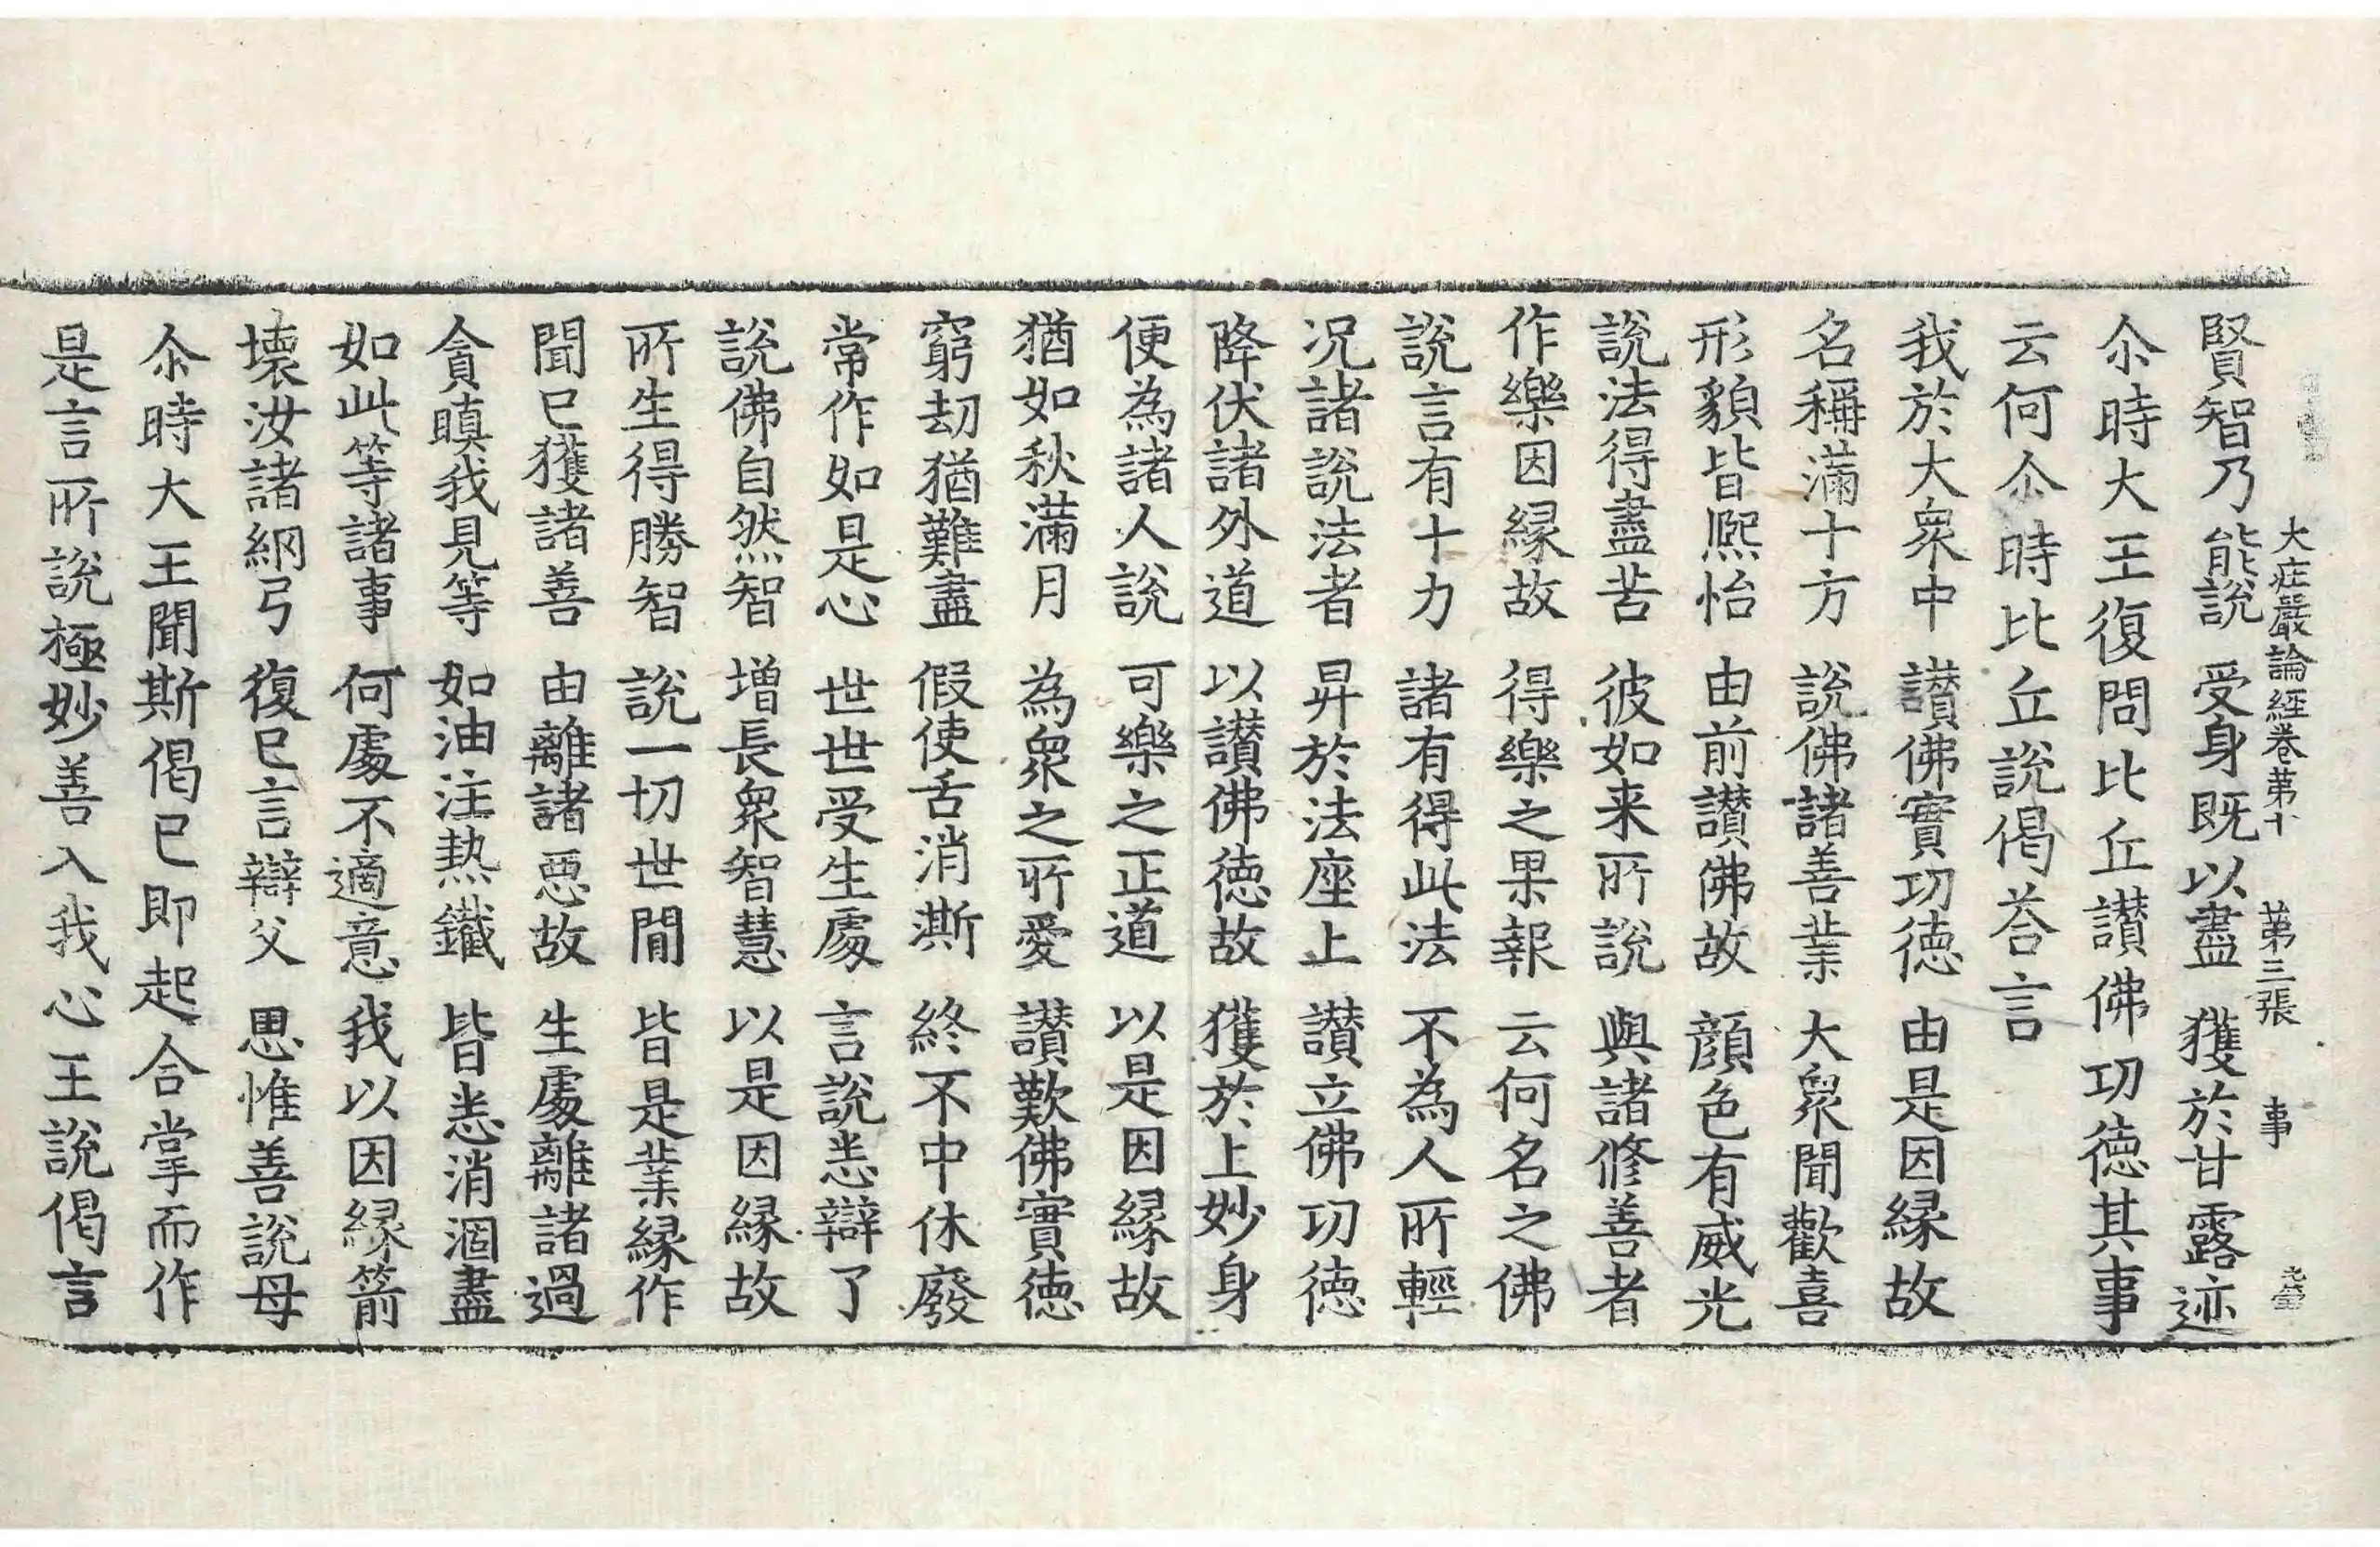 大庄嚴論経卷第十 第三張 事
賢智乃能說 受身既以盡 獲於甘露迹
尒時大王復問比丘讃佛功徳其事
云何尒時比丘說偈荅言
我於大衆中 讃佛實功徳 由是因縁故
名稱滿十方 說佛諸善業 大衆聞歡喜
形貌皆熈怡 由前讃佛故 顔色有威光
說法得盡苦 彼如来所說 與諸修善者
作樂因縁故 得樂之果報 云何名之佛
說言有十力 諸有得此法 不為人所輕
况諸說法者 昇於法座上 讃立佛功徳
降伏諸外道 以讃佛徳故 獲於上妙身
便為諸人說 可樂之正道 以是因縁故
猶如秋滿月 為衆之所愛 讃歎佛實徳
窮刧猶難盡 假使舌消澌 終不中休廢
常作如是心 世世受生處 言說悉辯了
說佛自然智 增長衆智慧 以是因縁故
所生得勝智 說一切世間 皆是業縁作
聞已獲諸善 由離諸惡故 生處離諸過
貪瞋我見等 如油注熱鐵 皆悉消涸盡
如此等諸事 何處不適意 我以因縁箭
壞汝諸網弓 復已言辯父 思惟善說母
尒時大王聞斯偈已即起合掌而作
是言所說極妙善入我心王說偈言